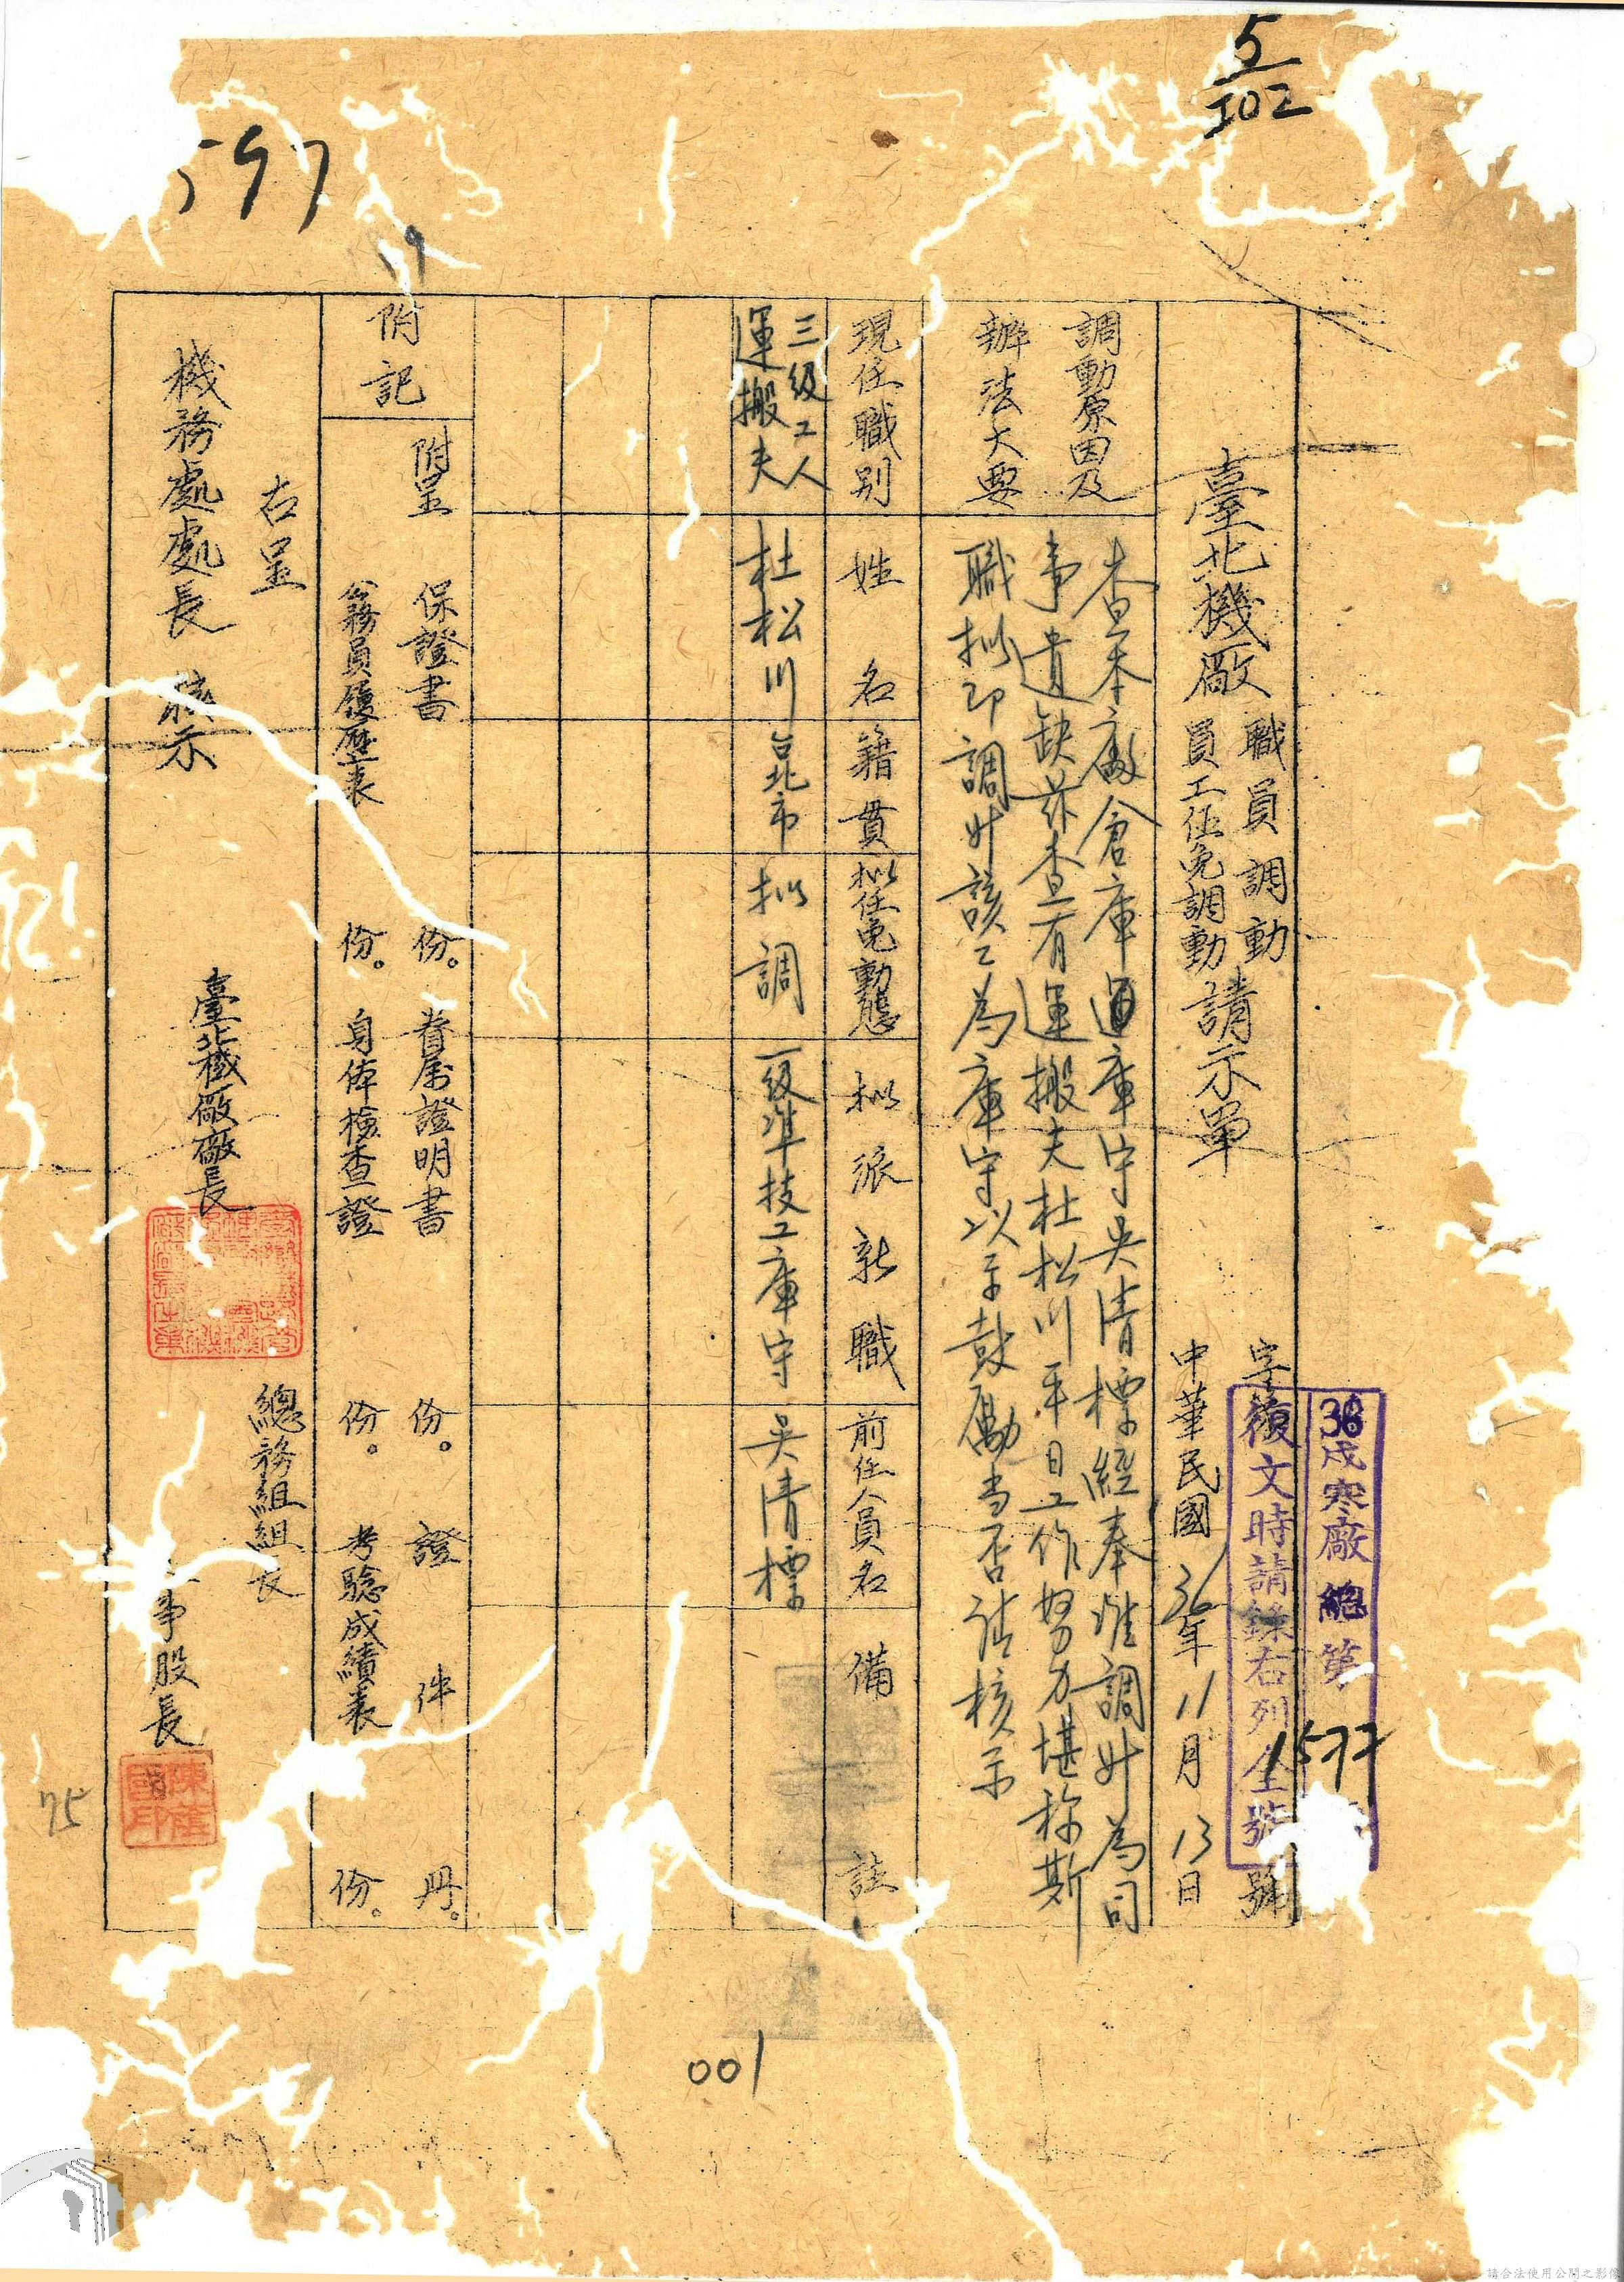 5
102
597
19
臺北機廠
職員調動
員工任免調動
請示單
字
號
36戌寒廠總第1577
復文時請錄右列全號
中華民國36年11月13日
調動原因及
辦法大要
查本廠倉庫庫守吳清標經奉准調升為司
事遺缺茲查有運搬夫杜松川平日工作努力堪稱斯
職擬即調升該工為庫守以示鼓勵當否請核示
現任職別
姓名
籍貫
擬任免動態
擬派新職
前任人員名
備註
三級工人
運搬夫
杜松川
台北市
擬調
一級準技工庫守
吳清標
附記
附呈
保證書 份。眷屬證明書 份。證件 冊。
公務員履歷表 份。身体檢查證 份。考驗成績表 份。
右呈
機務處處長 核示
臺北機廠廠長
總務組組長
事股長
75
001
請合法使用公開之影像